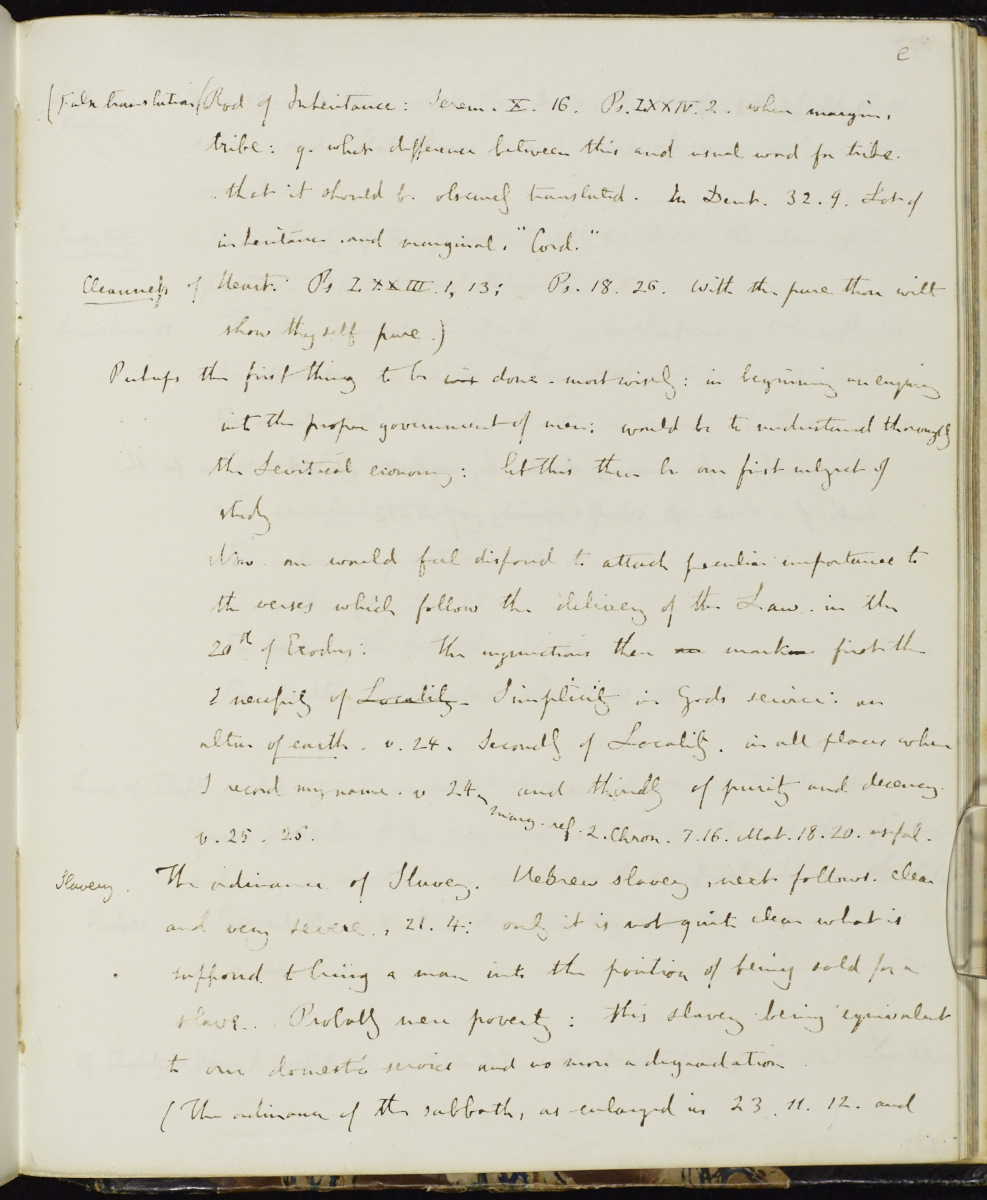 e
(False translation (Rod of Inheritance: Jerem. X. 16. Ps. LXXIV. 2. when margin,
tribe: q. what difference between this and usual word for tribe.
that it should be obscurely translated. In Deut. 32. 9. Lot of
inheritance and marginal, "Cord."
Cleanness of Heart. Ps LXXIII. 1, 13; Ps. 18. 26. With the pure thou wilt
show thyself pure.)
Perhaps the first thing to be done - most wisely: in beginning an enquiry
into the proper government of men; would be to understand thoroughly
the Levitical economy: let this then be our first subject of
study
Now one would feel disposed to attach peculiar importance to
the verses which follow the delivery of the Law in the
20th of Exodus: The injunctions then mark first the
necessity of Locality Simplicity in Gods service: an
altar of earth. v. 24. Secondly of Locality. in all places where
I record my name. v 24, and thirdly of purity and decency.
marg. ref. 2. Chron. 7.16. Mat. 18. 20. useful.
v. 25. 25.
Slavery. The ordinance of Slavery. Hebrew slavery, next follows. clear
and very severe, 21. 4: only it is not quite clear what is
supposed to bring a man into the position of being sold for a
slave. Probably mere poverty: this slavery being equivalent
to our domestic service and no more a degradation.
(The ordinance of the sabbath, as enlarged in 23. 11. 12. and